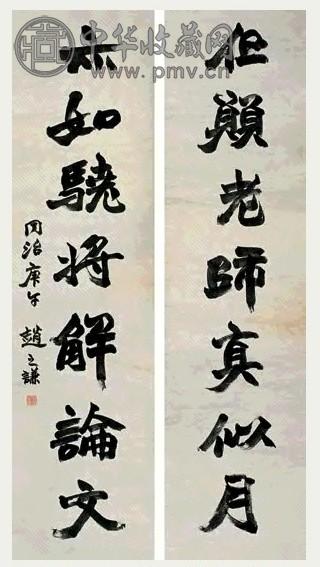 中华收藏网
www.pmv.cn
但願老師真似月
亦如驍將解論文
同治庚午 趙之謙